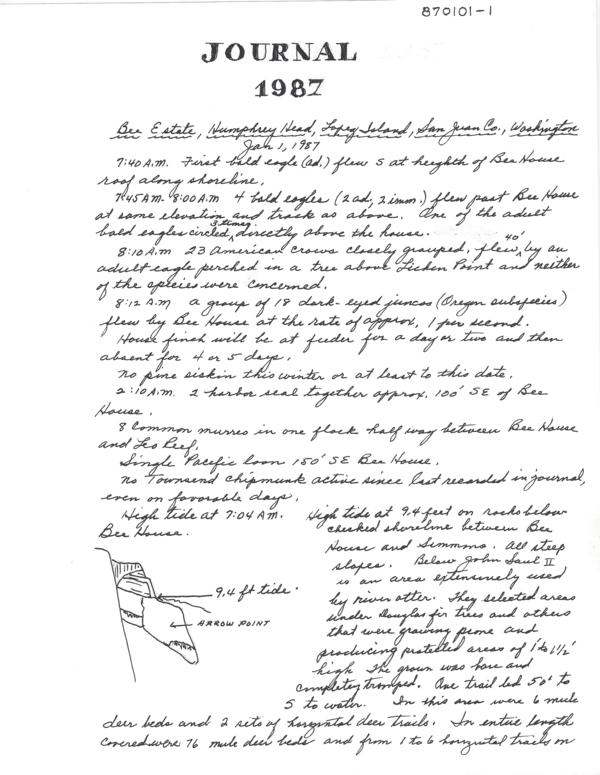 870101-1
JOURNAL
1987
Bee Estate, Humphrey Head, Lopez Island, San Juan Co., Washington
Jan 1, 1987
7:40 A.M. First bald eagle (ad.) flew S at heighth of Bee House
roof along shoreline.
7:45 A.M - 8:00 A.M 4 bald eagles (2 ad, 2 imm.) flew past Bee House
at same elevation and track as above. One of the adult
bald eagles circled 3 times directly above the house.
8:10 A.M 23 American crows closely grouped, flew 40' by an
adult eagle perched in a tree above Lichen Point and neither
of the species were concerned.
8:12 A.M a group of 18 dark-eyed juncos (Oregon subspecies)
flew by Bee House at the rate of approx, 1 per second.
House finch will be at feeder for a day or two and then
absent for 4 or 5 days.
No pine siskin this winter or at least to this date.
2:10 A.M. 2 harbor seal together approx. 100' SE of Bee
House.
8 Common murres in one flock half way between Bee House
and Leo Reef.
Single Pacific loon 150' SE Bee House.
No Townsend chipmunk active since last recorded in journal,
even on favorable days.
High tide at 7:04 A.M. High tide at 9.4 feet on rocks below
Bee House.
checked shoreline between Bee
House and Simmons. All steep
slopes. Below John Saul II
is an area extensively used
by river otter. They selected areas
under Douglas fir trees and others
that were growing prone and
producing protected areas of 1' to 1 1/2'
high The groun was bare and
completely tromped. One trail led 50' to
S to water. In this area were 6 mule
9.4 ft tide
ARROW POINT
deer beds and 2 sets of horizontal deer trails. In entire length
covered were 76 mule deer beds and from 1 to 6 horizontal trails on